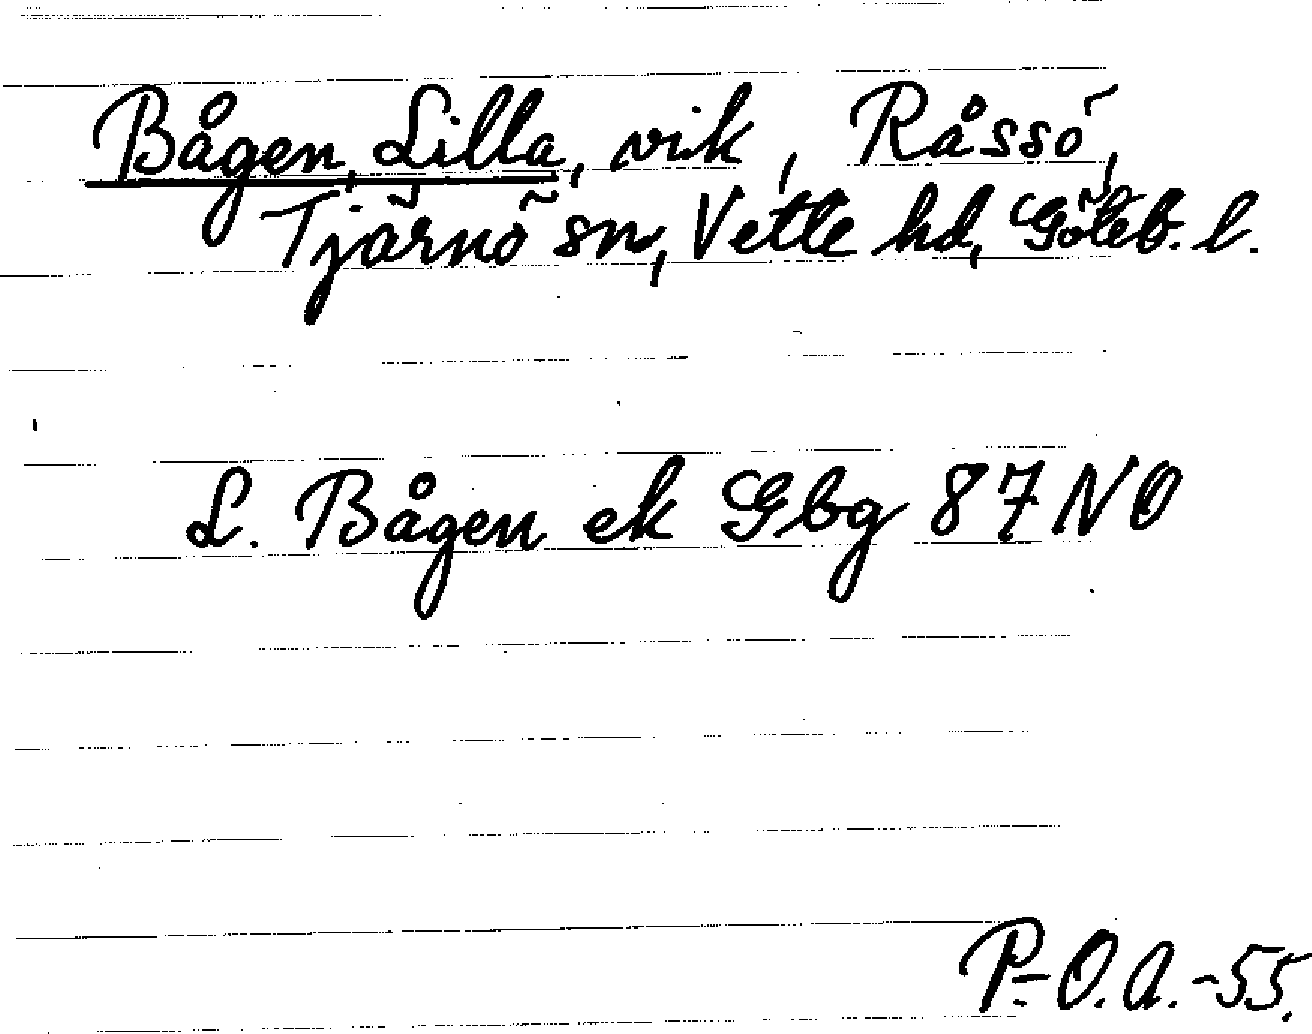 Bågen, Lilla, vik, Råssö,
Tjärnö sn, Vette hd, Göteb. l.
L. Bågen ek Gbg 87 NO
P.-O.A.-55.